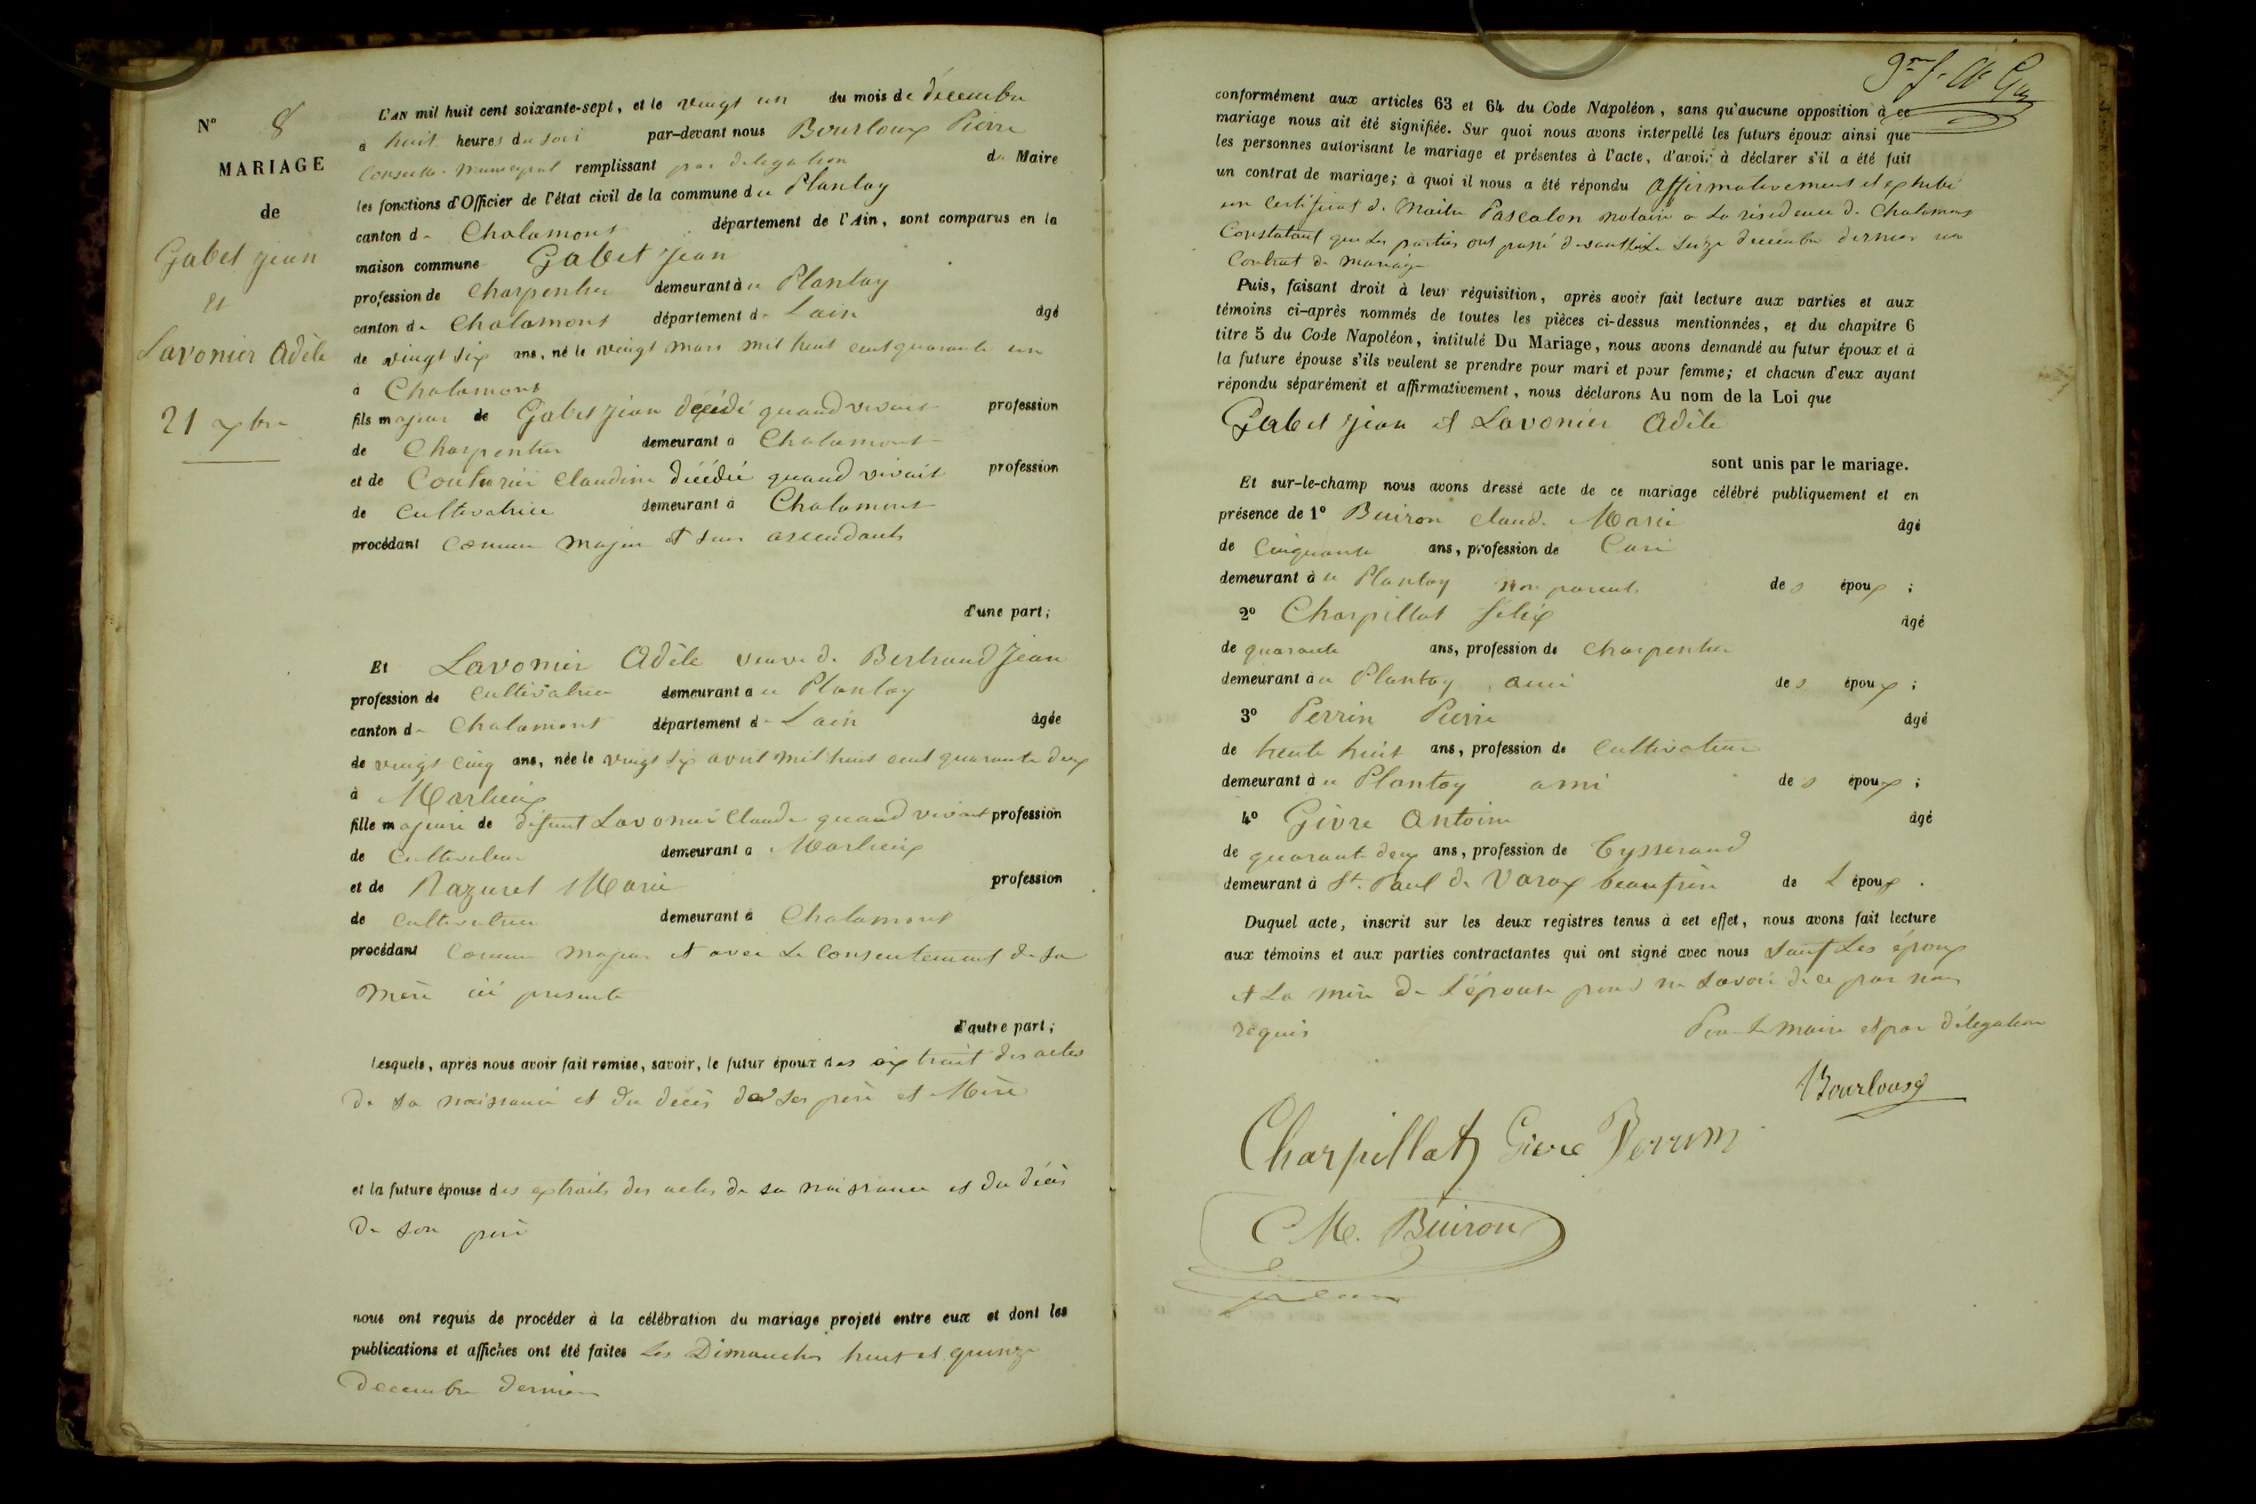 N° 8
MARIAGE
de
Gabet Jean
et
Lavonier Adèle
21 xbre
L'AN mil huit cent soixante-sept, et le vingt un du mois de décembre
à huit heures du soir par-devant nous Bourloux Pierre
Conseiller Municipal remplissant par delegation du Maire
les fonctions d'Officier de l'état civil de la commune du Plantay
canton de Chalamont département de l'Ain, sont comparus en la
maison commune Gabet Jean
profession de Charpentier demeurant à u Plantay
canton de Chalamont département de Lain âgé
de vingt six ans, né le vingt mars mil huit cent quarante un
à Chalamont
fils majeur de Gabet Jean décédé quand vivait profession
de Charpentier demeurant à Chalamont
et de Couturier Claudine décédée quand vivait profession
de Cultivatrice demeurant à Chalamont
procédant comme majeur et sans ascendants
d'une part;
Et Lavonier Adèle veuve de Bertrand Jean
profession de cultivatrice demeurant à u Plantay
canton de Chalamont département de Lain âgée
de vingt cinq ans, née le vingt six avril mil huit cent quarante deux
à Marlieux
fille majeure de defunt Lavonier Claude quand vivait profession
de Cultivateur demeurant à Marlieux
et de Razuret Marie profession
de cultivatrice demeurant à Chalamont
procédant comme majeur et avec le consentement de sa
mère ici presente
d'autre part;
lesquels, après nous avoir fait remise, savoir, le futur époux des extrait des actes
de sa naissance et du décès de ses père et Mère
et la future épouse des extraits des actes de sa naissance et du décès
de son père
nous ont requis de procéder à la célébration du mariage projeté entre eux et dont les
publications et affiches ont été faites les Dimanches huit et quinze
decembre dernier
conformément aux articles 63 et 64 du Code Napoléon, sans qu'aucune opposition à ce
mariage nous ait été signifiée. Sur quoi nous avons interpellé les futurs époux ainsi que
les personnes autorisant le mariage et présentes à l'acte, d'avoir à déclarer s'il a été fait
un contrat de mariage; à quoi il nous a été répondu affirmativement et exhibé
un certificat de Maitre Pascalon notaire a la résidence de Chalamont
Constatant que les parties ont passé devant lui le seize decembre dernier un
Contrat de mariage
Puis, faisant droit à leur réquisition, après avoir fait lecture aux parties et aux
témoins ci-après nommés de toutes les pièces ci-dessus mentionnées, et du chapitre 6
titre 5 du Code Napoléon, intitulé Du Mariage, nous avons demandé au futur époux et à
la future épouse s'ils veulent se prendre pour mari et pour femme; et chacun d'eux ayant
répondu séparément et affirmativement, nous déclarons Au nom de la Loi que
Gabet Jean et Lavonier Adèle
sont unis par le mariage.
Et sur-le-champ nous avons dressé acte de ce mariage célébré publiquement et en
présence de 1° Buiron Claude Marie âgé
de cinquante ans, profession de Curé
demeurant à u Plantay non parent des époux;
2° Charpillat Félix âgé
de quarante ans, profession de charpentier
demeurant à u Plantay ami des époux;
3° Perrin Pierre âgé
de trente huit ans, profession de cultivateur
demeurant à u Plantay ami des époux;
4° Givre Antoine âgé
de quarante deux ans, profession de Tysserand
demeurant à St. Paul de Varax beaufrère de L époux.
Duquel acte, inscrit sur les deux registres tenus à cet effet, nous avons fait lecture
aux témoins et aux parties contractantes qui ont signé avec nous sauf les époux
et la mère de l'épouse pour ne savoir de ce par nous
requis
Pour le maire et par délegation
Bourloux
Charpillat Givre Perrin
C M. Buiron